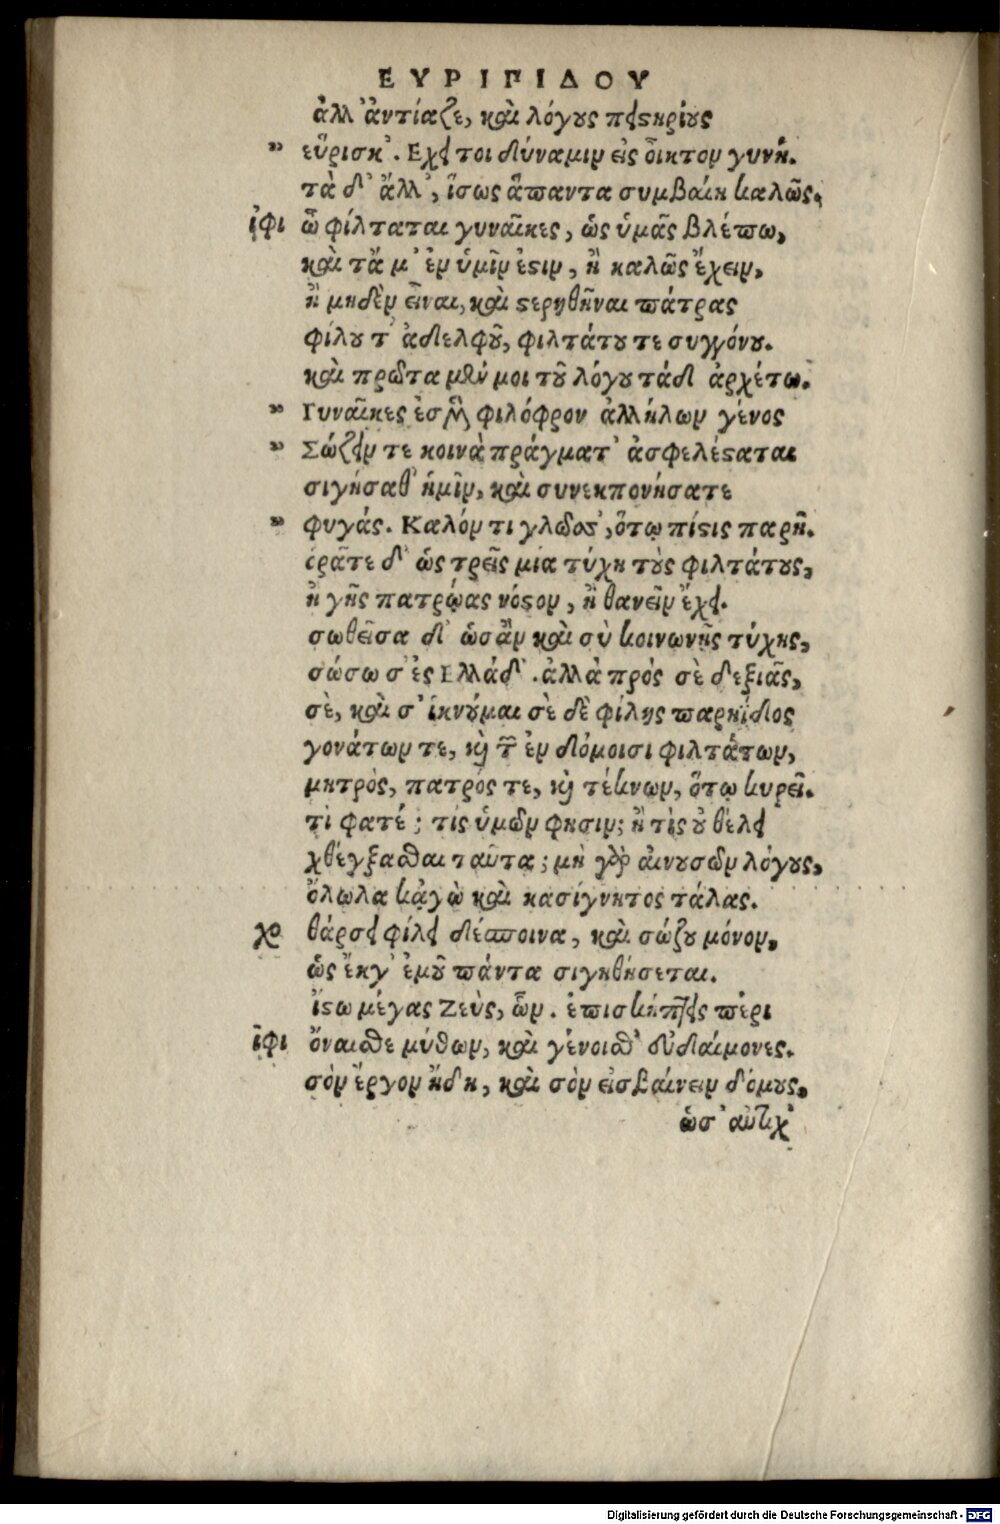 ΕΥΡΙΠΙΔΟΥ
ἀλλ' ἀντίαζε, καὶ λόγους πειστηρίους
" εὕρισκ'. Εχει τοι δύναμιν εἰς οἶκτον γυνή.
τὰ δ' ἄλλ', ἴσως ἅπαντα συμβαίη καλῶς.
ἰφι ὦ φίλταται γυναῖκες, ὡς ὑμᾶς βλέπω,
καὶ τἄ μ' ἐν ὑμῖν ἐστιν, ἢ καλῶς ἔχειν,
ἢ μηδὲν εἶναι, καὶ στερηθῆναι πάτρας
φίλου τ' ἀδελφοῦ, φιλτάτου τε συγγόνου.
καὶ πρῶτα μέν μοι τοῦ λόγου τάδ' ἀρχέτω.
" Γυναῖκες ἐσμὲν φιλόφρον ἀλλήλων γένος
" Σώζειν τε κοινὰ πράγματ' ἀσφελέσταται
σιγήσαθ' ἡμῖν, καὶ συνεκπονήσατε
" φυγάς. Καλόν τι γλῶσσ', ὅτῳ πίστις παρῇ.
ὁρᾶτε δ' ὡς τρεῖς μία τύχη τοὺς φιλτάτους,
ἢ γῆς πατρῴας νόστον, ἢ θανεῖν ἔχει.
σωθεῖσα δ' ὡς ἂν καὶ σὺ κοινωνῇς τύχης,
σώσω σ' ἐς Ελλάδ'. ἀλλὰ πρός σὲ δεξιᾶς,
σὲ, καὶ σ' ἱκνοῦμαι σὲ δὲ φίλης παρηίδος
γονάτων τε, καὶ τῶν ἐν δόμοισι φιλτάτων,
μητρὸς, πατρός τε, καὶ τέκνων, ὅτῳ κυρεῖ.
τί φατέ; τίς ὑμῶν φησιν; ἢ τὶς οὐ θέλει
χθέγξασθαι ταῦτα; μὴ γὰρ αἰνουσῶν λόγους,
ὄλωλα κἀγὼ καὶ κασίγνητος τάλας.
χο θάρσει φίλη δέσποινα, καὶ σώζου μόνον,
ὡς ἔκγ' ἐμοῦ πάντα σιγηθήσεται.
ἴστω μέγας Ζεὺς, ὧν. ἐπισκήπτεις πέρι
ἰφι ὄναισθε μύθων, καὶ γένοισθ' εὐδαίμονες.
σὸν ἔργον ἤδη, καὶ σὸν εἰσβαίνειν δόμους,
ὡς' αὐτίχ'
Digitalisierung gefördert durch die Deutsche Forschungsgemeinschaft - DFG